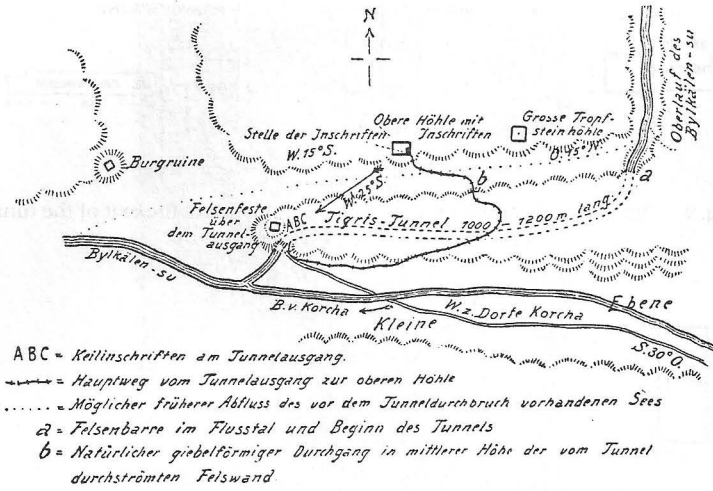 N
Obere Höhle mit
Inschriften
Grosse Tropf-
steinhöhle
Oberlauf des
Bylkälen-su
Stelle der Inschriften
W. 15° S.
O. 15° N.
Burgruine
b
a
W. 25° S.
Felsenfeste
über
dem Tunnel-
ausgang
ABC
Tigris-Tunnel 1000 – 1200 m. lang.
Bylkälen-su
B. v. Korcha
W. z. Dorfe Korcha
Kleine
Ebene
S. 30° O.
ABC = Keilinschriften am Tunnelausgang.
= Hauptweg vom Tunnelausgang zur oberen Höhle
..... = Möglicher früherer Abfluss des vor dem Tunneldurchbruch vorhandenen Sees
a = Felsenbarre im Flusstal und Beginn des Tunnels
b = Natürlicher giebelförmiger Durchgang in mittlerer Höhe der vom Tunnel
durchströmten Felswand